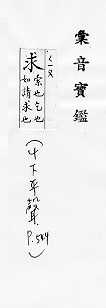 彙音寶鑑
求
索也乞也
如請求也
(4下平聲
P.564)